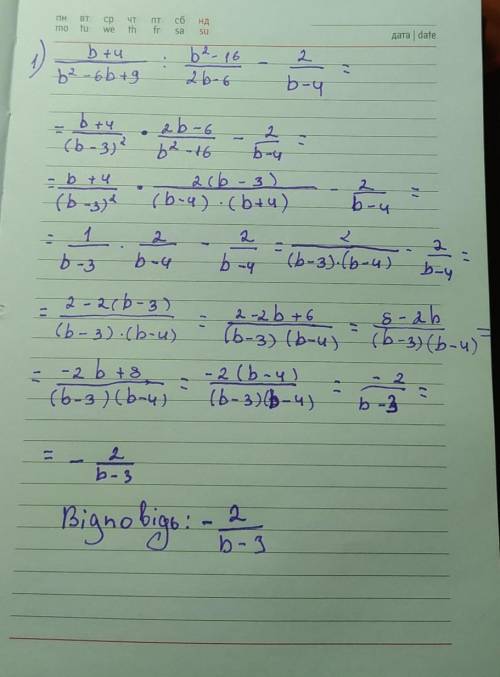 пн вт ср чт пт сб нд
mo tu we th fr sa su
дата | date
1) \frac{b+4}{b^2-6b+9} : \frac{b^2-16}{2b-6} - \frac{2}{b-4} =
= \frac{b+4}{(b-3)^2} • \frac{2b-6}{b^2-16} - \frac{2}{b-4} =
= \frac{b+4}{(b-3)^2} • \frac{2(b-3)}{(b-4)·(b+4)} - \frac{2}{b-4} =
= \frac{1}{b-3} · \frac{2}{b-4} - \frac{2}{b-4} = \frac{2}{(b-3)·(b-4)} - \frac{2}{b-4} =
= \frac{2-2(b-3)}{(b-3)·(b-4)} = \frac{2-2b+6}{(b-3)(b-4)} = \frac{8-2b}{(b-3)(b-4)} =
= \frac{-2b+8}{(b-3)(b-4)} = \frac{-2(b-4)}{(b-3)(b-4)} = \frac{-2}{b-3} =
= - \frac{2}{b-3}
Відповідь: - \frac{2}{b-3}